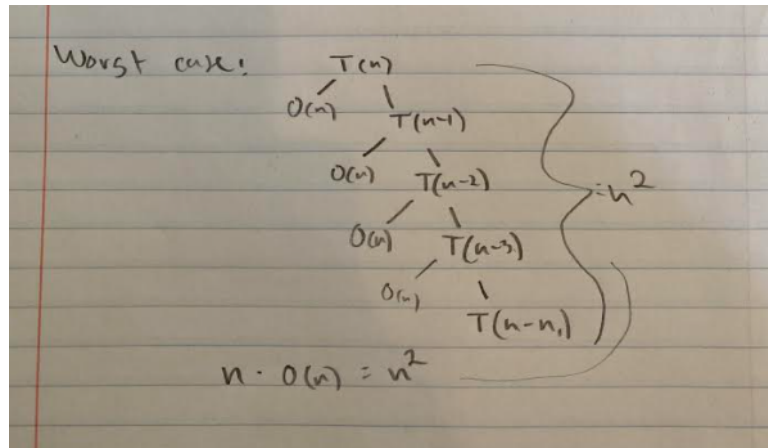 Worst case:
T(n)
O(n)
T(n-1)
O(n)
T(n-2)
=n²
O(n)
T(n-3)
O(n)
T(n-n)
n · O(n) = n²